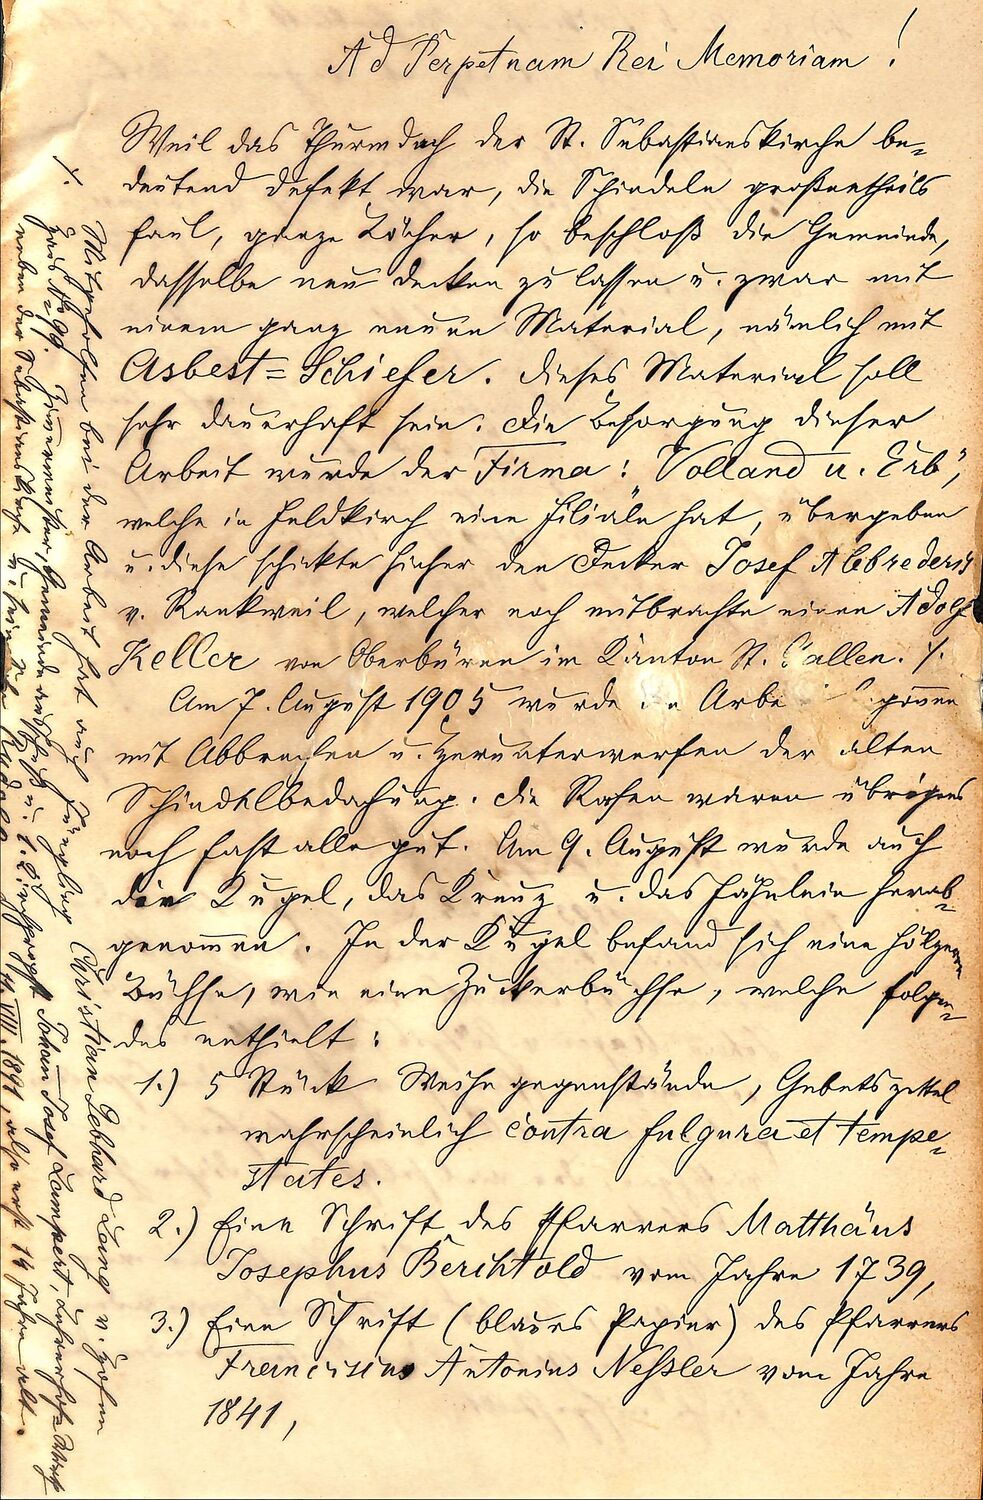 Ad Perpetuam Rei Memoriam!
Weil das Thurmdach der St. Sebastianskirche be-
deutend defekt war, die Schindeln großentheils
faul, ganze Löcher, so beschloß die Gemeinde,
dasselbe neu decken zu lassen u. zwar mit
einem ganz neuen Material, nämlich mit
Asbest=Schiefer. Dieses Material soll
sehr dauerhaft sein. Die Besorgung dieser
Arbeit wurde der Firma: „Volland u. Erb“,
welche in Feldkirch eine Filiale hat, übergeben
u. diese schickte hieher den Decker Josef Abbrederis
v. Rankweil, welcher noch mitbrachte einen Adolf
Keller von Oberbüren im Kanton St. Gallen. /.
Am 7. August 1905 wurde Arbe gonnen
mit Abbrechen u. Herunterwerfen der alten
Schindelbedachung. Die Rafen waren übrigens
noch fast alle gut. Am 9. August wurde auch
die Kugel, das Kreuz u. das Fähnlein herab-
genommen. In der Kugel befand sich eine hölzerne
Büchse, wie eine Zuckerbüchse, welche folgen-
des enthielt:
1.) 5 Stück Weihegegenstände, Gebetszettel
wahrscheinlich contra fulgura et tempe-
states.
2.) Eine Schrift des Pfarrers Matthäus
Josephus Berchtold vom Jahre 1739,
3.) Eine Schrift (blaues Papier) des Pfarrers
Franciscus Antonius Nessler vom Jahre
1841,
/. Mitgeholfen bei der Arbeit hat auch Christian Gebhard Lang v. Hofen
Haus № 99. Zimmermeister, Johann Josef Lampert,
neben der Sebastianskirche u. sein Rudolf VIII. 1891, also erst 14 Jahre alt.